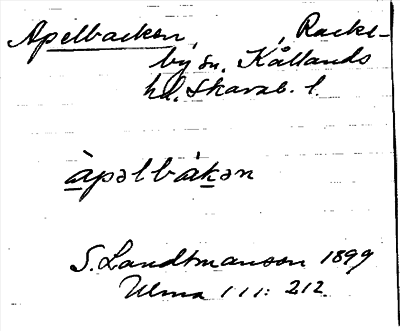 Apelbacken, , Racke-
by sn. Kållands
hd. Skarab. l.
àpəlbákən
S. Landtmanson 1899
Ulma 111: 212.